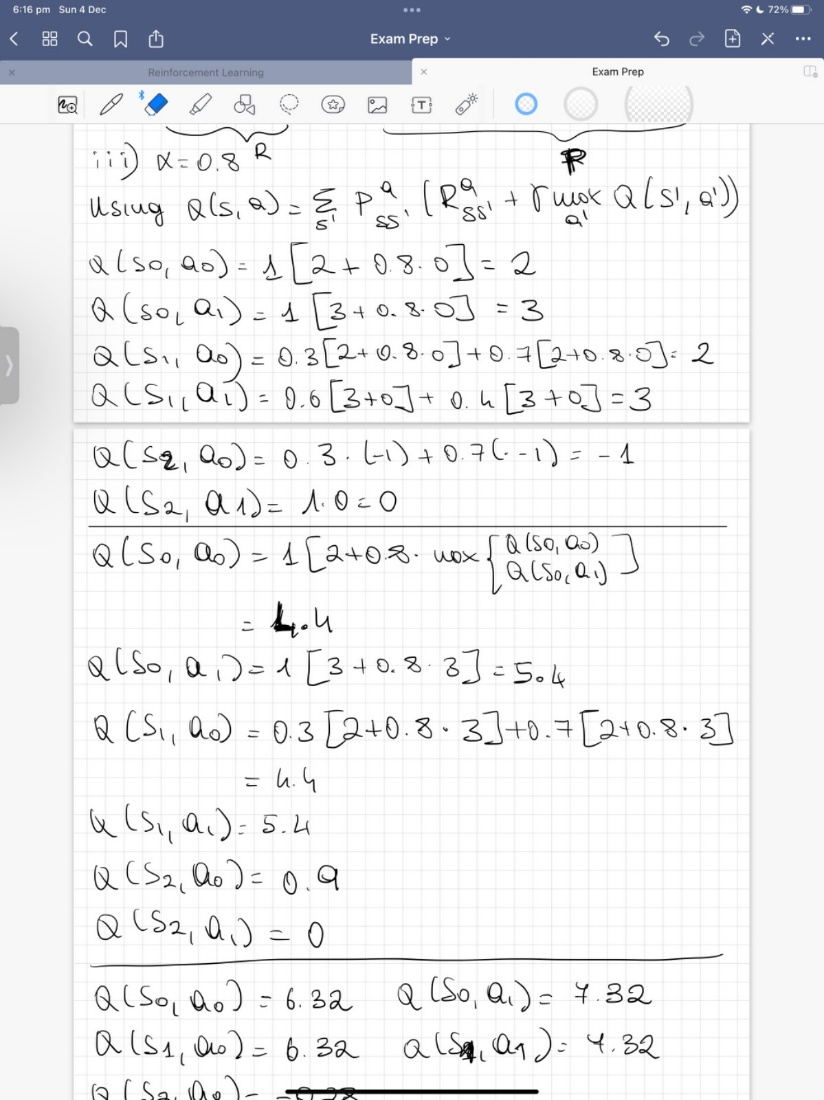 6:16 pm Sun 4 Dec
72%
Exam Prep
Reinforcement Learning
Exam Prep
iii) α=0.8 R
R
Using Q(s,a) = Σ_s' P^a_ss' (R^a_ss' + γ max_a' Q(s',a'))
Q(s0, a0) = 1[2+0.8·0] = 2
Q(s0, a1) = 1[3+0.8·0] = 3
Q(s1, a0) = 0.3[2+0.8·0]+0.7[2+0.8·0] = 2
Q(s1, a1) = 0.6[3+0]+0.4[3+0] = 3
Q(s2, a0) = 0.3·(-1)+0.7(·-1) = -1
Q(s2, a1) = 1·0 = 0
Q(s0, a0) = 1[2+0.8· max{Q(s0, a0)
Q(s0, a1)]
= 4.4
Q(s0, a1) = 1[3+0.8·3] = 5.4
Q(s1, a0) = 0.3[2+0.8·3]+0.7[2+0.8·3]
= 4.4
Q(s1, a1) = 5.4
Q(s2, a0) = 0.9
Q(s2, a1) = 0
Q(s0, a0) = 6.32 Q(s0, a1) = 7.32
Q(s1, a0) = 6.32 Q(s1, a1) = 7.32
Q(s2, a0) =